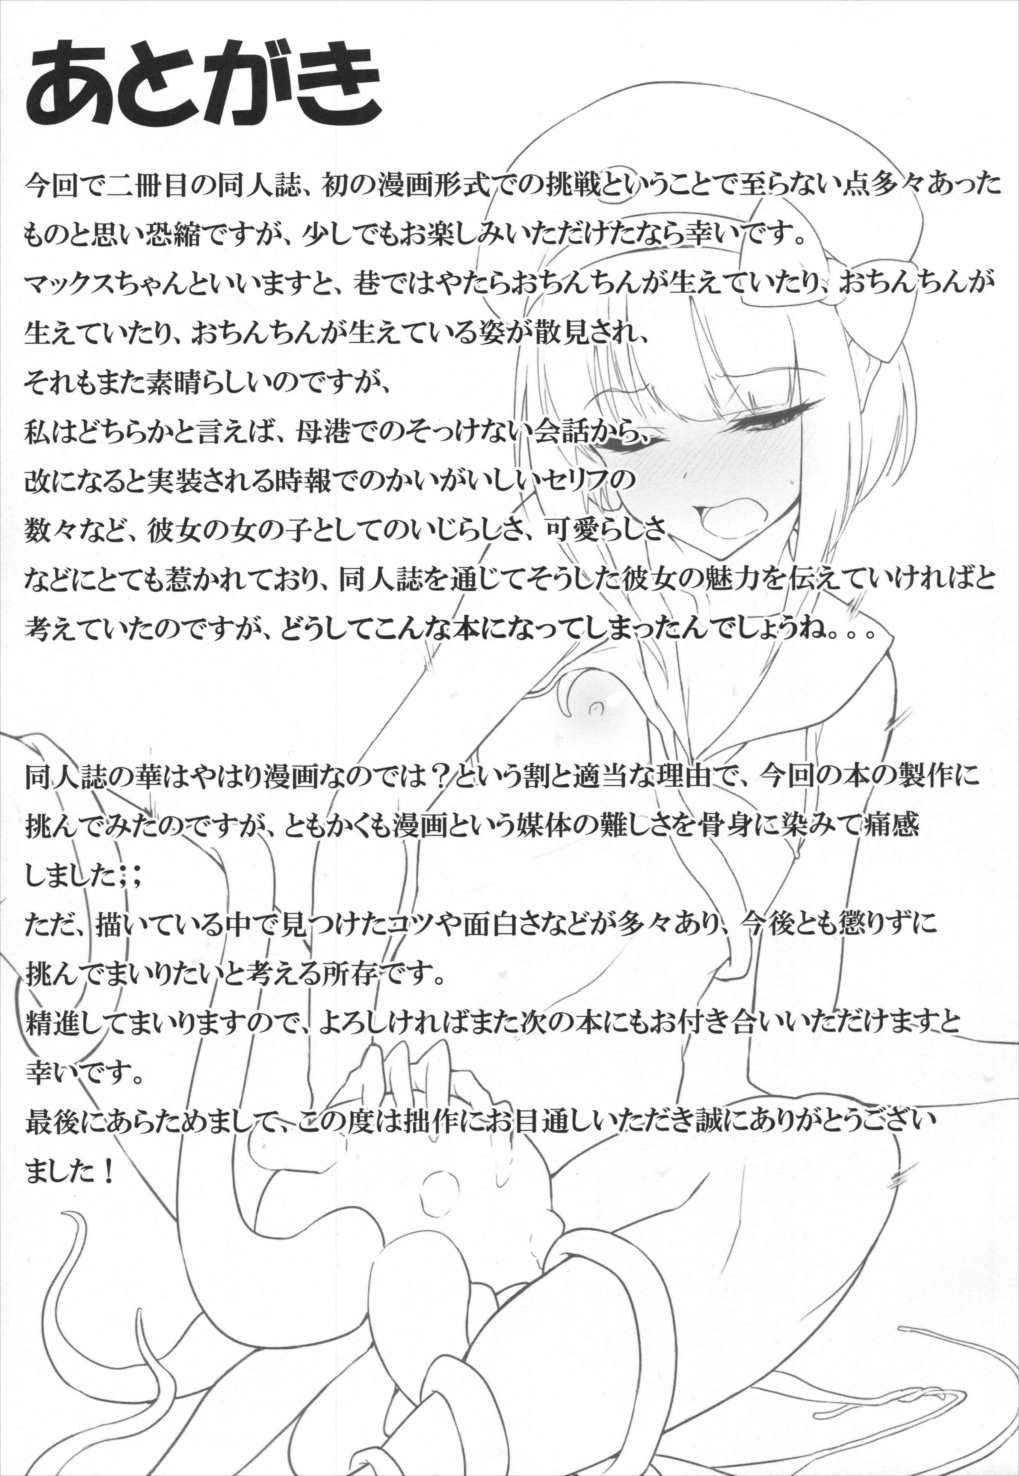 あとがき
今回で二冊目の同人誌、初の漫画形式での挑戦ということで至らない点多々あった
ものと思い恐縮ですが、少しでもお楽しみいただけたなら幸いです。
マックスちゃんといいますと、巷ではやたらおちんちんが生えていたり、おちんちんが
生えていたり、おちんちんが生えている姿が散見され、
それもまた素晴らしいのですが、
私はどちらかと言えば、母港でのそっけない会話から、
改になると実装される時報でのかいがいしいセリフの
数々など、彼女の女の子としてのいじらしさ、可愛らしさ
などにとても惹かれており、同人誌を通じてそうした彼女の魅力を伝えていければと
考えていたのですが、どうしてこんな本になってしまったんでしょうね。。。
同人誌の華はやはり漫画なのでは？という割と適当な理由で、今回の本の製作に
挑んでみたのですが、ともかくも漫画という媒体の難しさを骨身に染みて痛感
しました;;
ただ、描いている中で見つけたコツや面白さなどが多々あり、今後とも懲りずに
挑んでまいりたいと考える所存です。
精進してまいりますので、よろしければまた次の本にもお付き合いいただけますと
幸いです。
最後にあらためまして、この度は拙作にお目通しいただき誠にありがとうござい
ました！